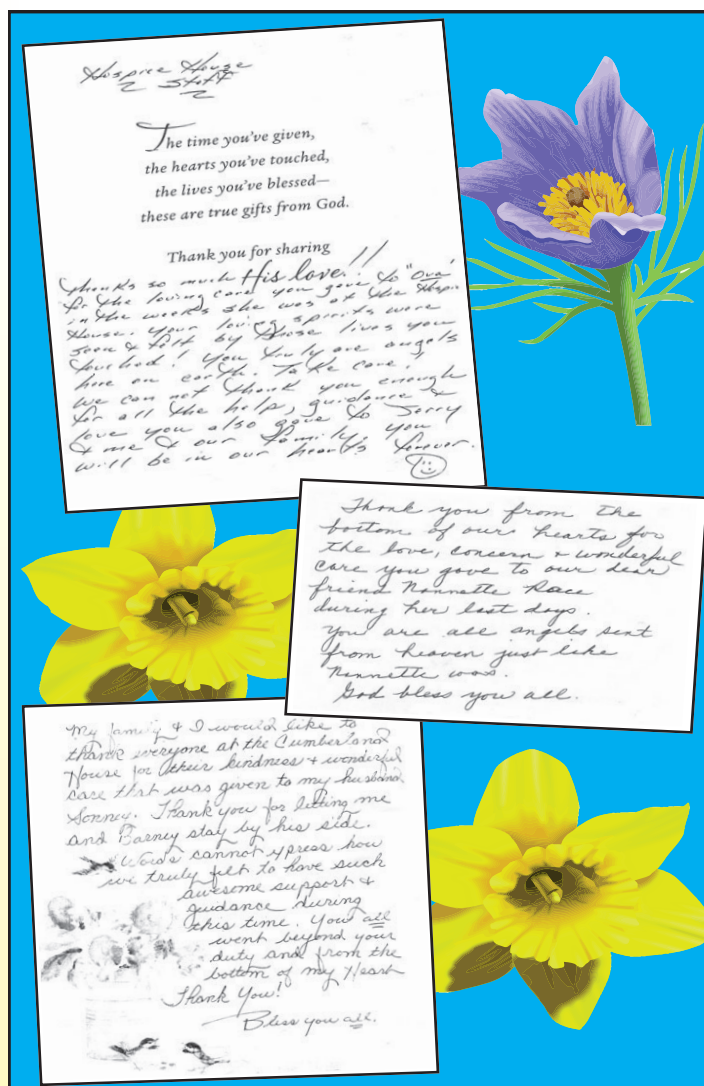 Hospice House
Staff
The time you've given,
the hearts you've touched,
the lives you've blessed—
these are true gifts from God.
Thank you for sharing
His love!!
Thanks so much
for the loving care you gave to "Ova"
in the weeks she was at the Hospice
House. Your loving spirits were
seen & felt by those lives you
touched! You truly are angels
here on earth. Take care!
We can not thank you enough
for all the help, guidance &
love you also gave to Jerry
& me & our family. You
will be in our hearts forever.
Thank you from the
bottom of our hearts for
the love, concern & wonderful
care you gave to our dear
friend Nannette Race
during her last days.
You are all angels sent
from heaven just like
Nannette was.
God bless you all.
My family & I would like to
thank everyone at the Cumberland
House for their kindness & wonderful
care that was given to my husband
Sonney. Thank you for letting me
and Barney stay by his side.
Words cannot xpress how
we truly felt to have such
awesome support &
guidance during
this time. You all
went beyond your
duty and from the
bottom of my Heart
Thank You!
Bless you all.